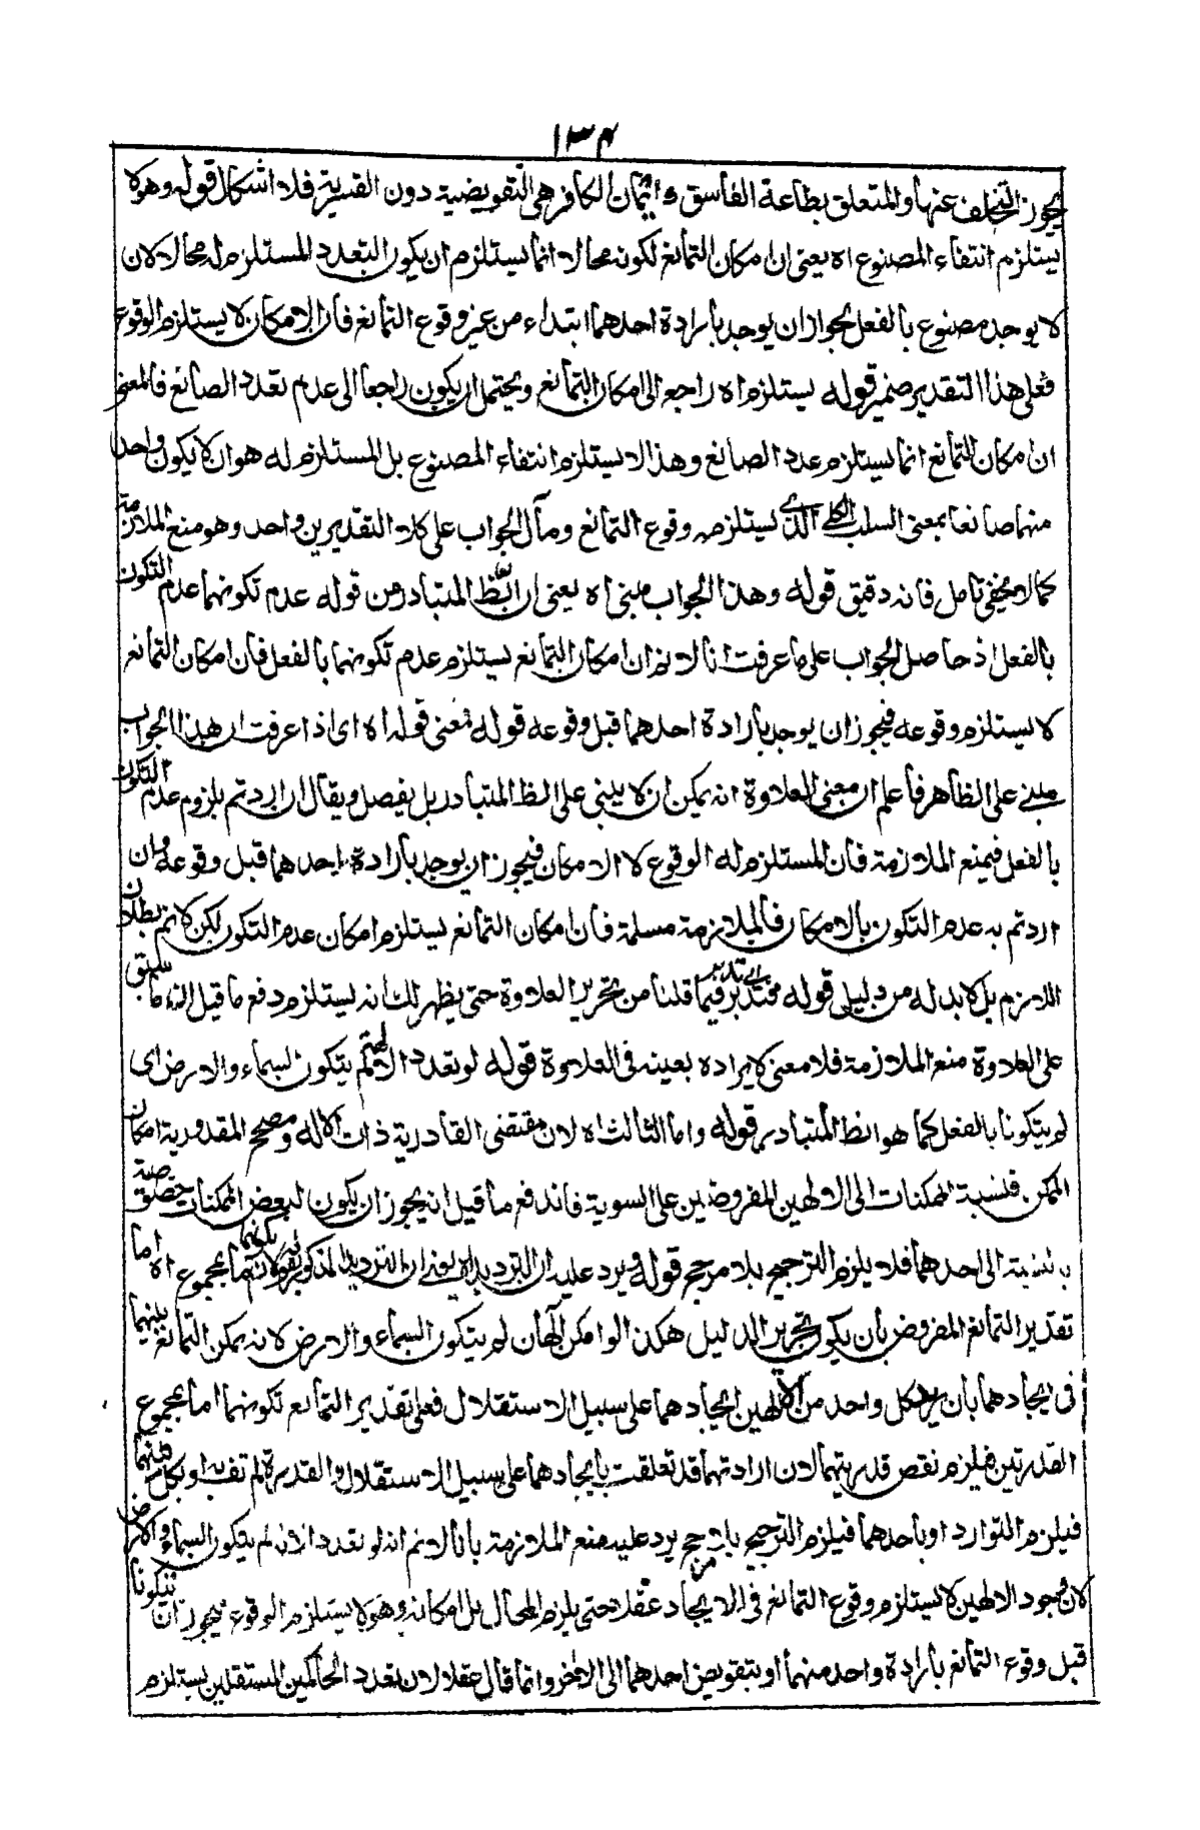 ١٣٤
يجوز التخلف عنها والمتعلق بطاعة الفاسق وايمان الكافر هى التفويضية دون القسرية فلا اشكال قوله وهو لا
يستلزم انتفاء المصنوع اه يعنى ان امكان التمانع لكونه محالا انما يستلزم ان يكون التعدد المستلزم له محالا لان
لا يوجد مصنوع بالفعل لجواز ان يوجد بارادة احدهما ابتداء من غير وقوع التمانع فان الامكان لا يستلزم الوقوع
فعلى هذا التقدير ضمير قوله يستلزم اه راجع الى امكان التمانع ويحتمل ان يكون راجعا الى عدم تعدد الصانع فالمعنى
ان امكان التمانع انما يستلزم عدد الصانع وهذا لا يستلزم انتفاء المصنوع بل المستلزم له هو ان لا يكون واحد
منهما صانعا بمعنى السلب الكلى الذى يستلزمه وقوع التمانع ومآل الجواب على كلا التقديرين واحد وهو منع الملازمة
كما لا يخفى تامل فانه دقيق قوله وهذا الجواب مبنى اه يعنى ان الظ المتبادر من قوله عدم تكونهما عدم التكون
بالفعل اذ حاصل الجواب على ما عرفت انا لا نم ان امكان التمانع يستلزم عدم تكونهما بالفعل فان امكان التمانع
لا يستلزم وقوعه فيجوز ان يوجد بارادة احدهما قبل وقوعه قوله فمعنى قوله اه اى اذا عرفت ان هذا الجواب
مبنى على الظاهر فاعلم ان معنى العلاوة انه يمكن ان لا يبنى على الظ المتبادر بل يفصل ويقال ان اردتم بلزوم عدم التكون
بالفعل فيمنع الملازمة فان المستلزم له الوقوع لا الامكان فيجوز ان يوجد بارادة احدهما قبل وقوعه وان
اردتم به عدم التكون بالامكان فالملازمة مسلمة فان امكان التمانع يستلزم امكان عدم التكون لكن لا نم بطلان
اللازم بل لا بد له من دليل قوله فتدبر اى تدبر فيما قلنا من تحرير العلاوة حتى يظهر لك انه يستلزم دفع ما قيل ان ما سبق
على العلاوة منع الملازمة فلا معنى لايراده بعينه فى العلاوة قوله لو تعدد الالهة لم يتكون السماء والارض اى
لم يتكونا بالفعل كما هو الظ المتبادر قوله واما الثالث اه لان مقتضى القادرية ذات الاله ومصحح المقدورية امكان
الممكن فنسبة الممكنات الى الالهين المفروضين على السوية فاندفع ما قيل انه يجوز ان يكون لبعض الممكنات خصوصية
بنسبته الى احدهما فلا يلزم الترجيح بلا مرجح قوله ويرد عليه ان الترديد اه يعنى ان الترديد المذكور بقوله لان تكونهما اما بمجموع اه اما
تقدير التمانع المفروض بان يكون تحرير الدليل هكذا لو امكن الهان لم يتكون السماء والارض لانه يمكن التمانع بينهما
فى ايجادهما بان يريد كل واحد من الالهين ايجادهما على سبيل الاستقلال فعلى تقدير التمانع تكونهما اما بمجموع
القدرتين فيلزم نقص قدرتهما لان ارادتهما قد تعلقت بايجادهما على سبيل الاستقلال والقدرة لم تف به او بكل منهما
فيلزم التوارد او باحدهما فيلزم الترجيح بلا مرجح يرد عليه منع الملازمة بانا لا نم انه لو تعدد الاله لم يتكون السماء والارض
لان وجود الالهين لا يستلزم وقوع التمانع فى الايجاد عقلا حتى يلزم المحال بل امكانه وهو لا يستلزم الوقوع فيجوز ان يتكونا
قبل وقوع التمانع بارادة واحد منهما او بتفويض احدهما الى الاخر وانما قال عقلا لان تعدد الحاكمين المستقلين يستلزم